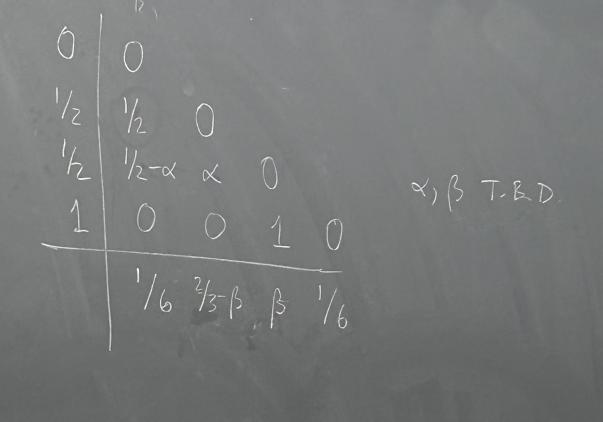 0 0
1/2 1/2 0
1/2 1/2-α α 0
1 0 0 1 0
1/6 2/3-β β 1/6
α, β T.B.D.